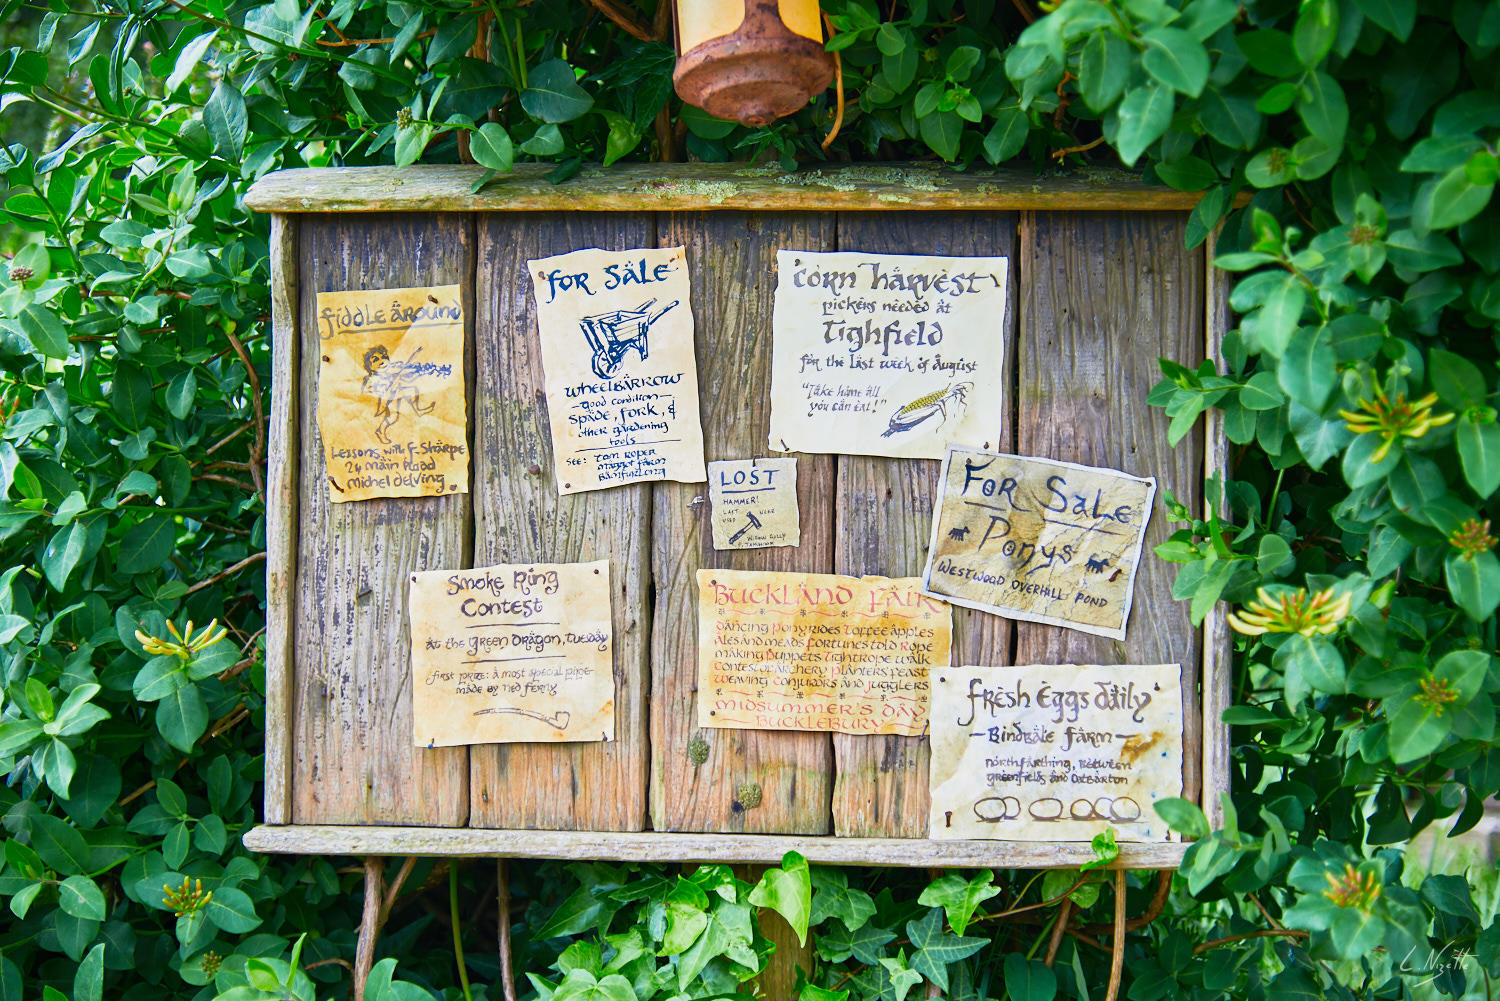 Fiddle Around
Lessons with F. Sharpe
24 Main Road
Michel Delving
For Sale
Wheelbarrow
—good condition—
Spade, fork, &
other gardening
tools
See: Tom Roper
Maggot Farm
Bamfurlong
Corn Harvest
pickers needed at
Tighfield
for the last week of August
"Take home all
you can eat!"
LOST
HAMMER!
LAST USED NEAR
WILLOW GULLY
For Sale
Ponys
Westwood Overhill Pond
Smoke Ring
Contest
At the Green Dragon, Tuesday
First prize: a most special pipe
made by Ned Ferny
Buckland Fair
dancing pony rides toffee apples
ales and meads fortunes told rope
making puppets tightrope walk
contest archery planters feast
weaving conjurors and jugglers
midsummer's day
Bucklebury
Fresh Eggs daily
—Bindbale Farm—
Northfarthing, between
Greenfields and Oatbarton
L. Nizette